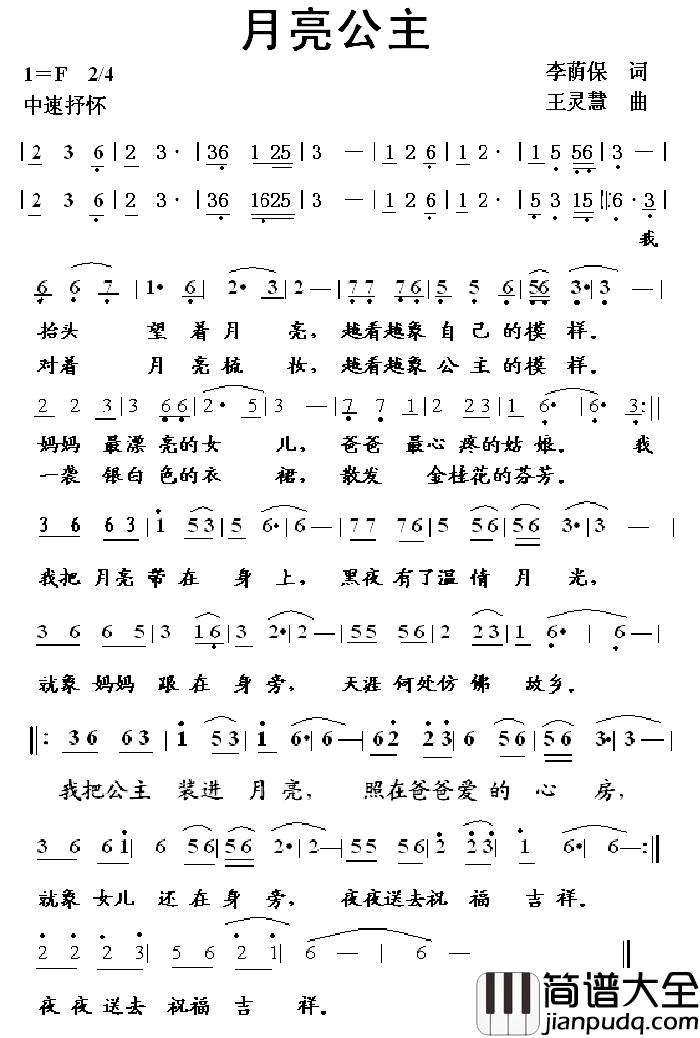 月亮公主
1=F 2/4
李荫保 词
中速抒怀
王灵慧 曲
| 2 3 6 | 2 3· | 36 1 25 | 3 — | 1 2 6 | 1 2· | 1 5 56 | 3 — |
| 2 3 6 | 2 3· | 36 1625 | 3 — | 1 2 6 | 1 2· | 5 3 15 |: 6· 3 |
我
6 6 7 | 1· 6 | 2· 3 | 2 — | 77 76 | 5 5 6 | 56 3· | 3 — |
抬头 望着月 亮，越看越象自己的模样。
对着 月亮梳 妆，越看越象公主的模样。
2 2 3 | 3 66 | 2· 5 | 3 — | 7 7 1 | 2 23 | 1 6· | 6· 3 :||
妈妈 最漂亮的女 儿，爸爸 最心疼的姑娘。 我
一袭 银白色的衣 裙，散发 金桂花的芬芳。
3 6 63 | 1 53 | 5 6· | 6 — | 77 76 | 5 56 | 56 3· | 3 — |
我把月亮带在身上，黑夜有了温情月光，
36 65 | 3 16 | 3 2· | 2 — | 55 55 | 2 23 | 1 6· | 6 — |
就象妈妈跟在身旁， 天涯何处仿佛 故乡。
||: 36 63 | 1 53 | 1 6· | 6 — | 62 23 | 6 56 | 56 3· | 3 — |
我把公主 装进月亮， 照在爸爸爱的心房，
3 6 61 | 6 56 | 56 2· | 2 — | 55 56 | 2 23 | 1 6· | 6 — :||
就象女儿还在身旁， 夜夜送去祝福吉祥。
2 2 23 | 5 6 | 2 1 | 6 — | 6 — ||
夜夜送去 祝福吉 祥。
简谱大全
jianpudq.com